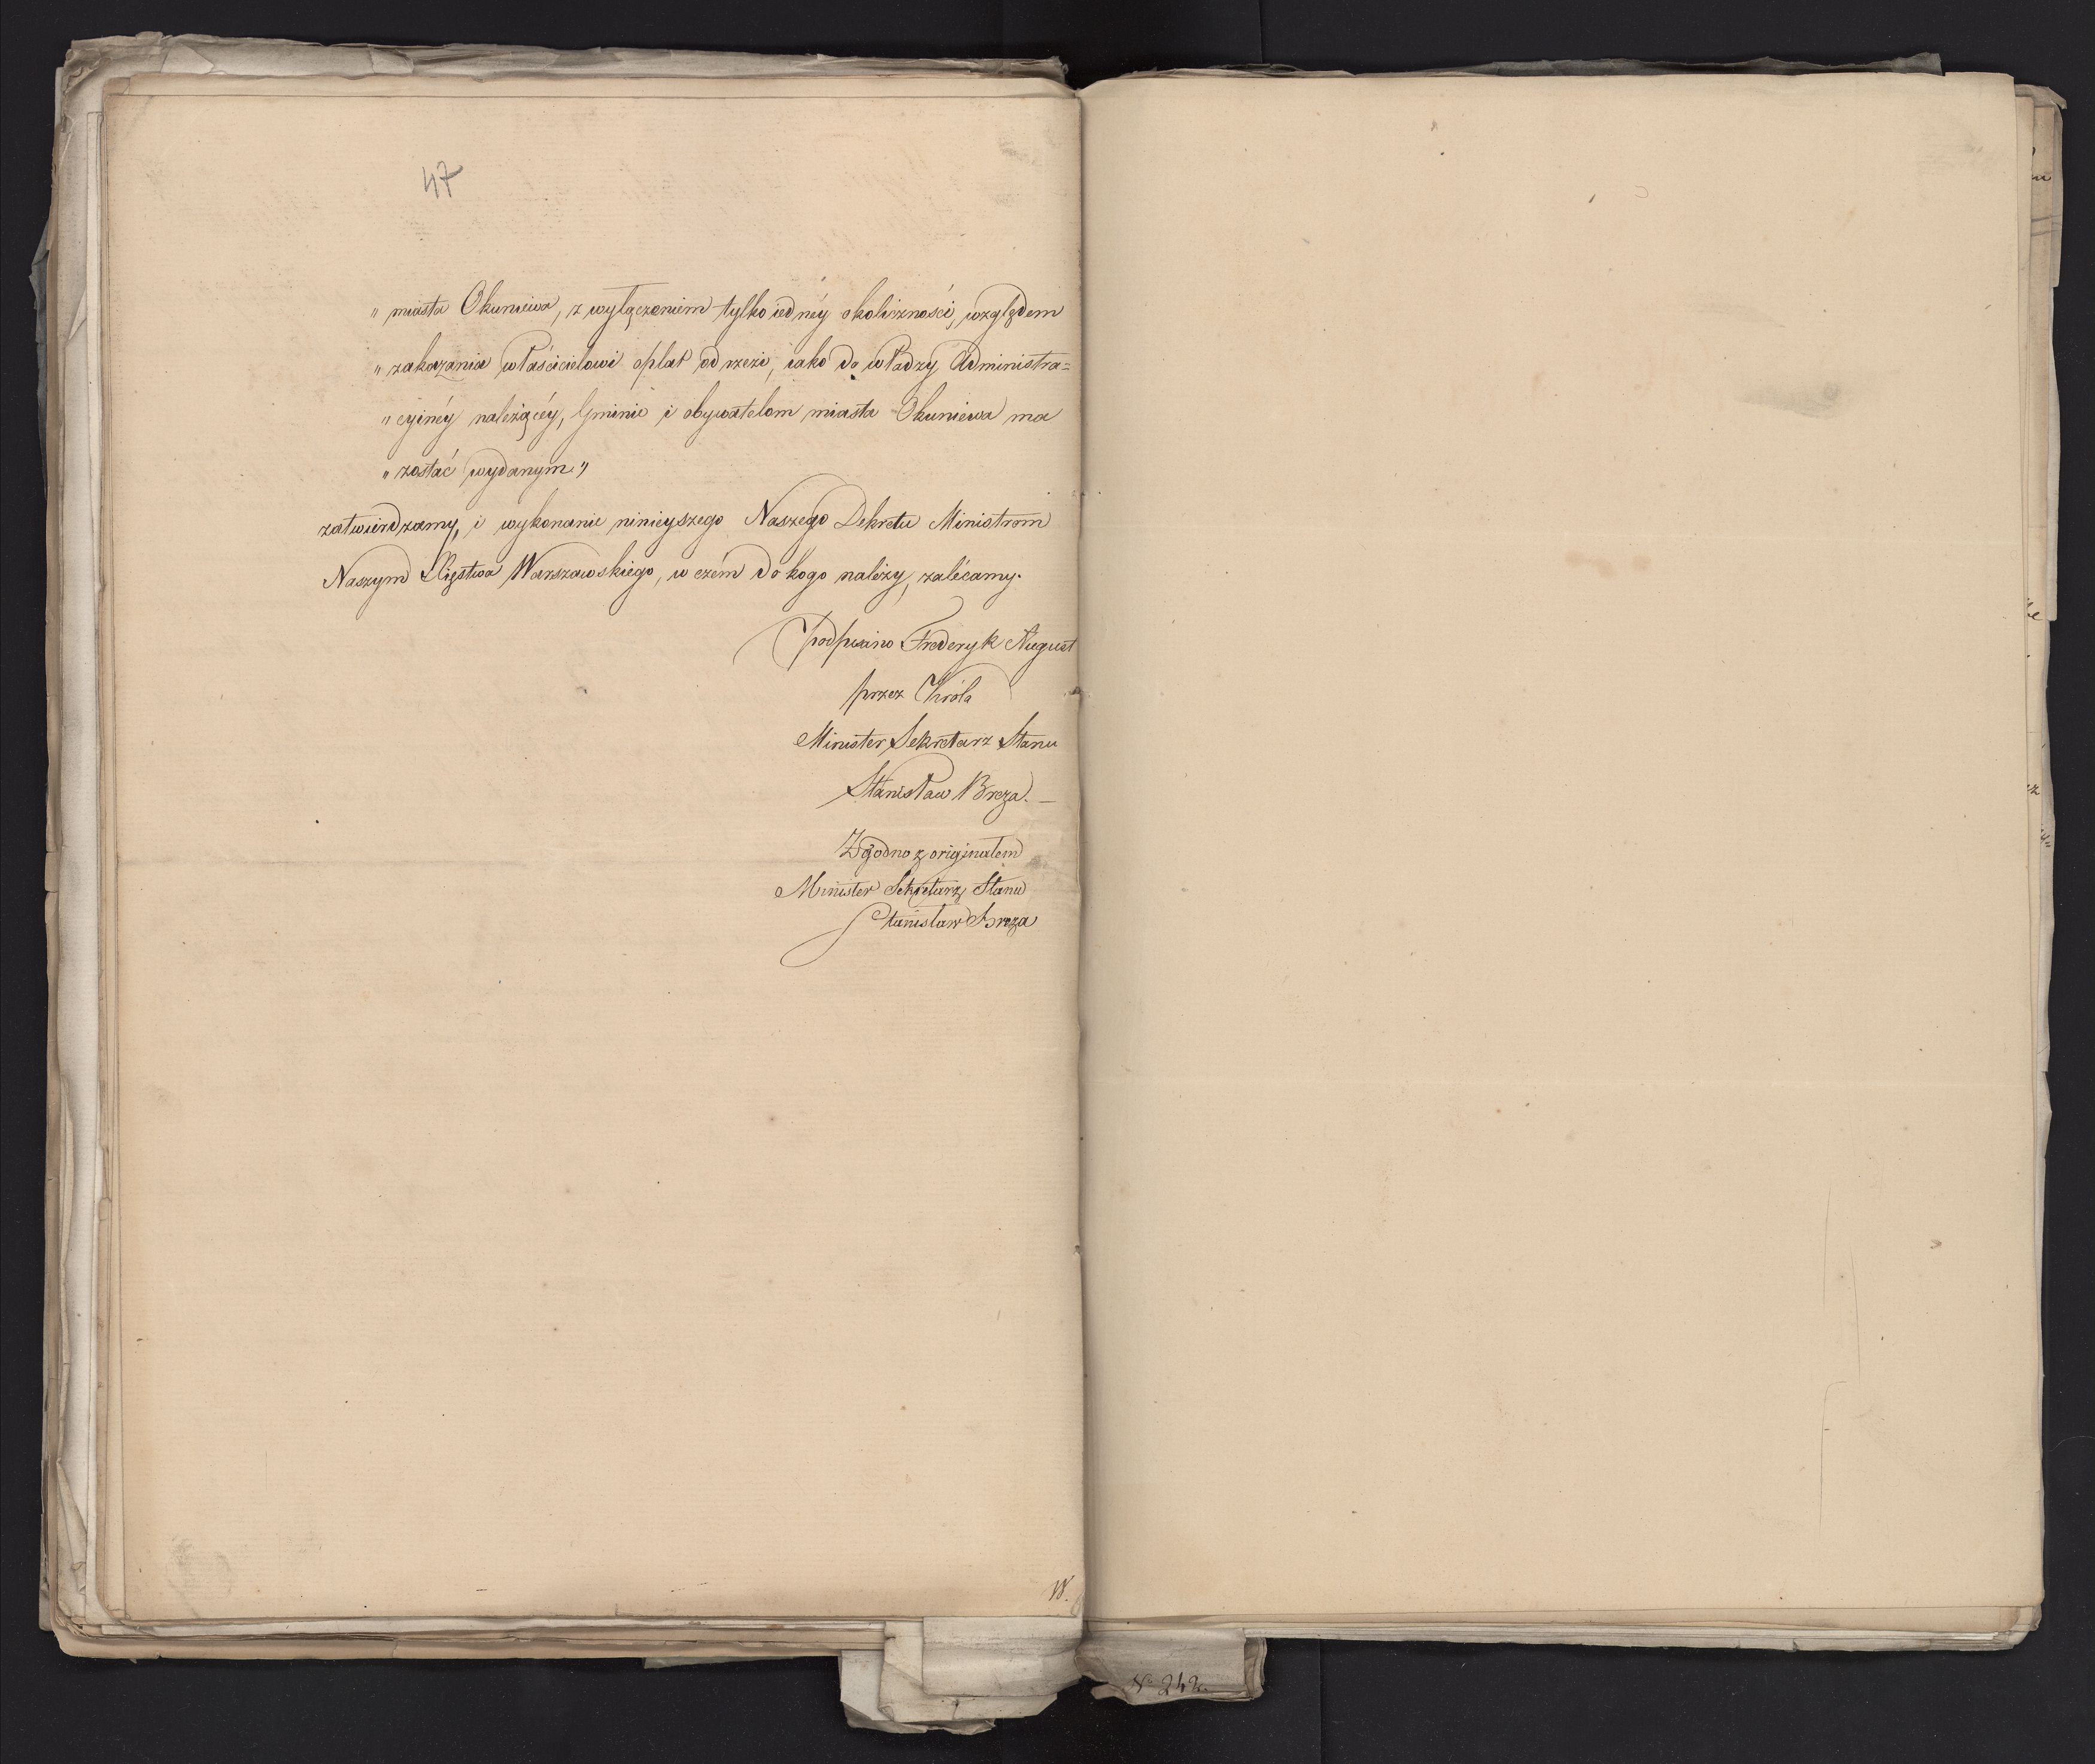 47
„ miasta Okuniewa, z wyłączeniem tylko iednéy okoliczności, względem
„ zakazania właścicielowi opłat od rzezi, iako do władzy Administra=
„ cyinéy należącéy, Gminie i obywatelom miasta Okuniewa ma
„ zostać wydanym „
zatwierdzamy, i wykonanie ninieyszego Naszego Dekretu Ministrom
Naszym Xięstwa Warszawskiego, w czém do kogo należy, zalécamy.
Podpisano Frederyk August
przez Króla
Minister Sekretarz Stanu
Stanisław Breza. —
Zgodno z originałem
Minister Sekretarz Stanu
Stanisław Breza
18.
No 242.